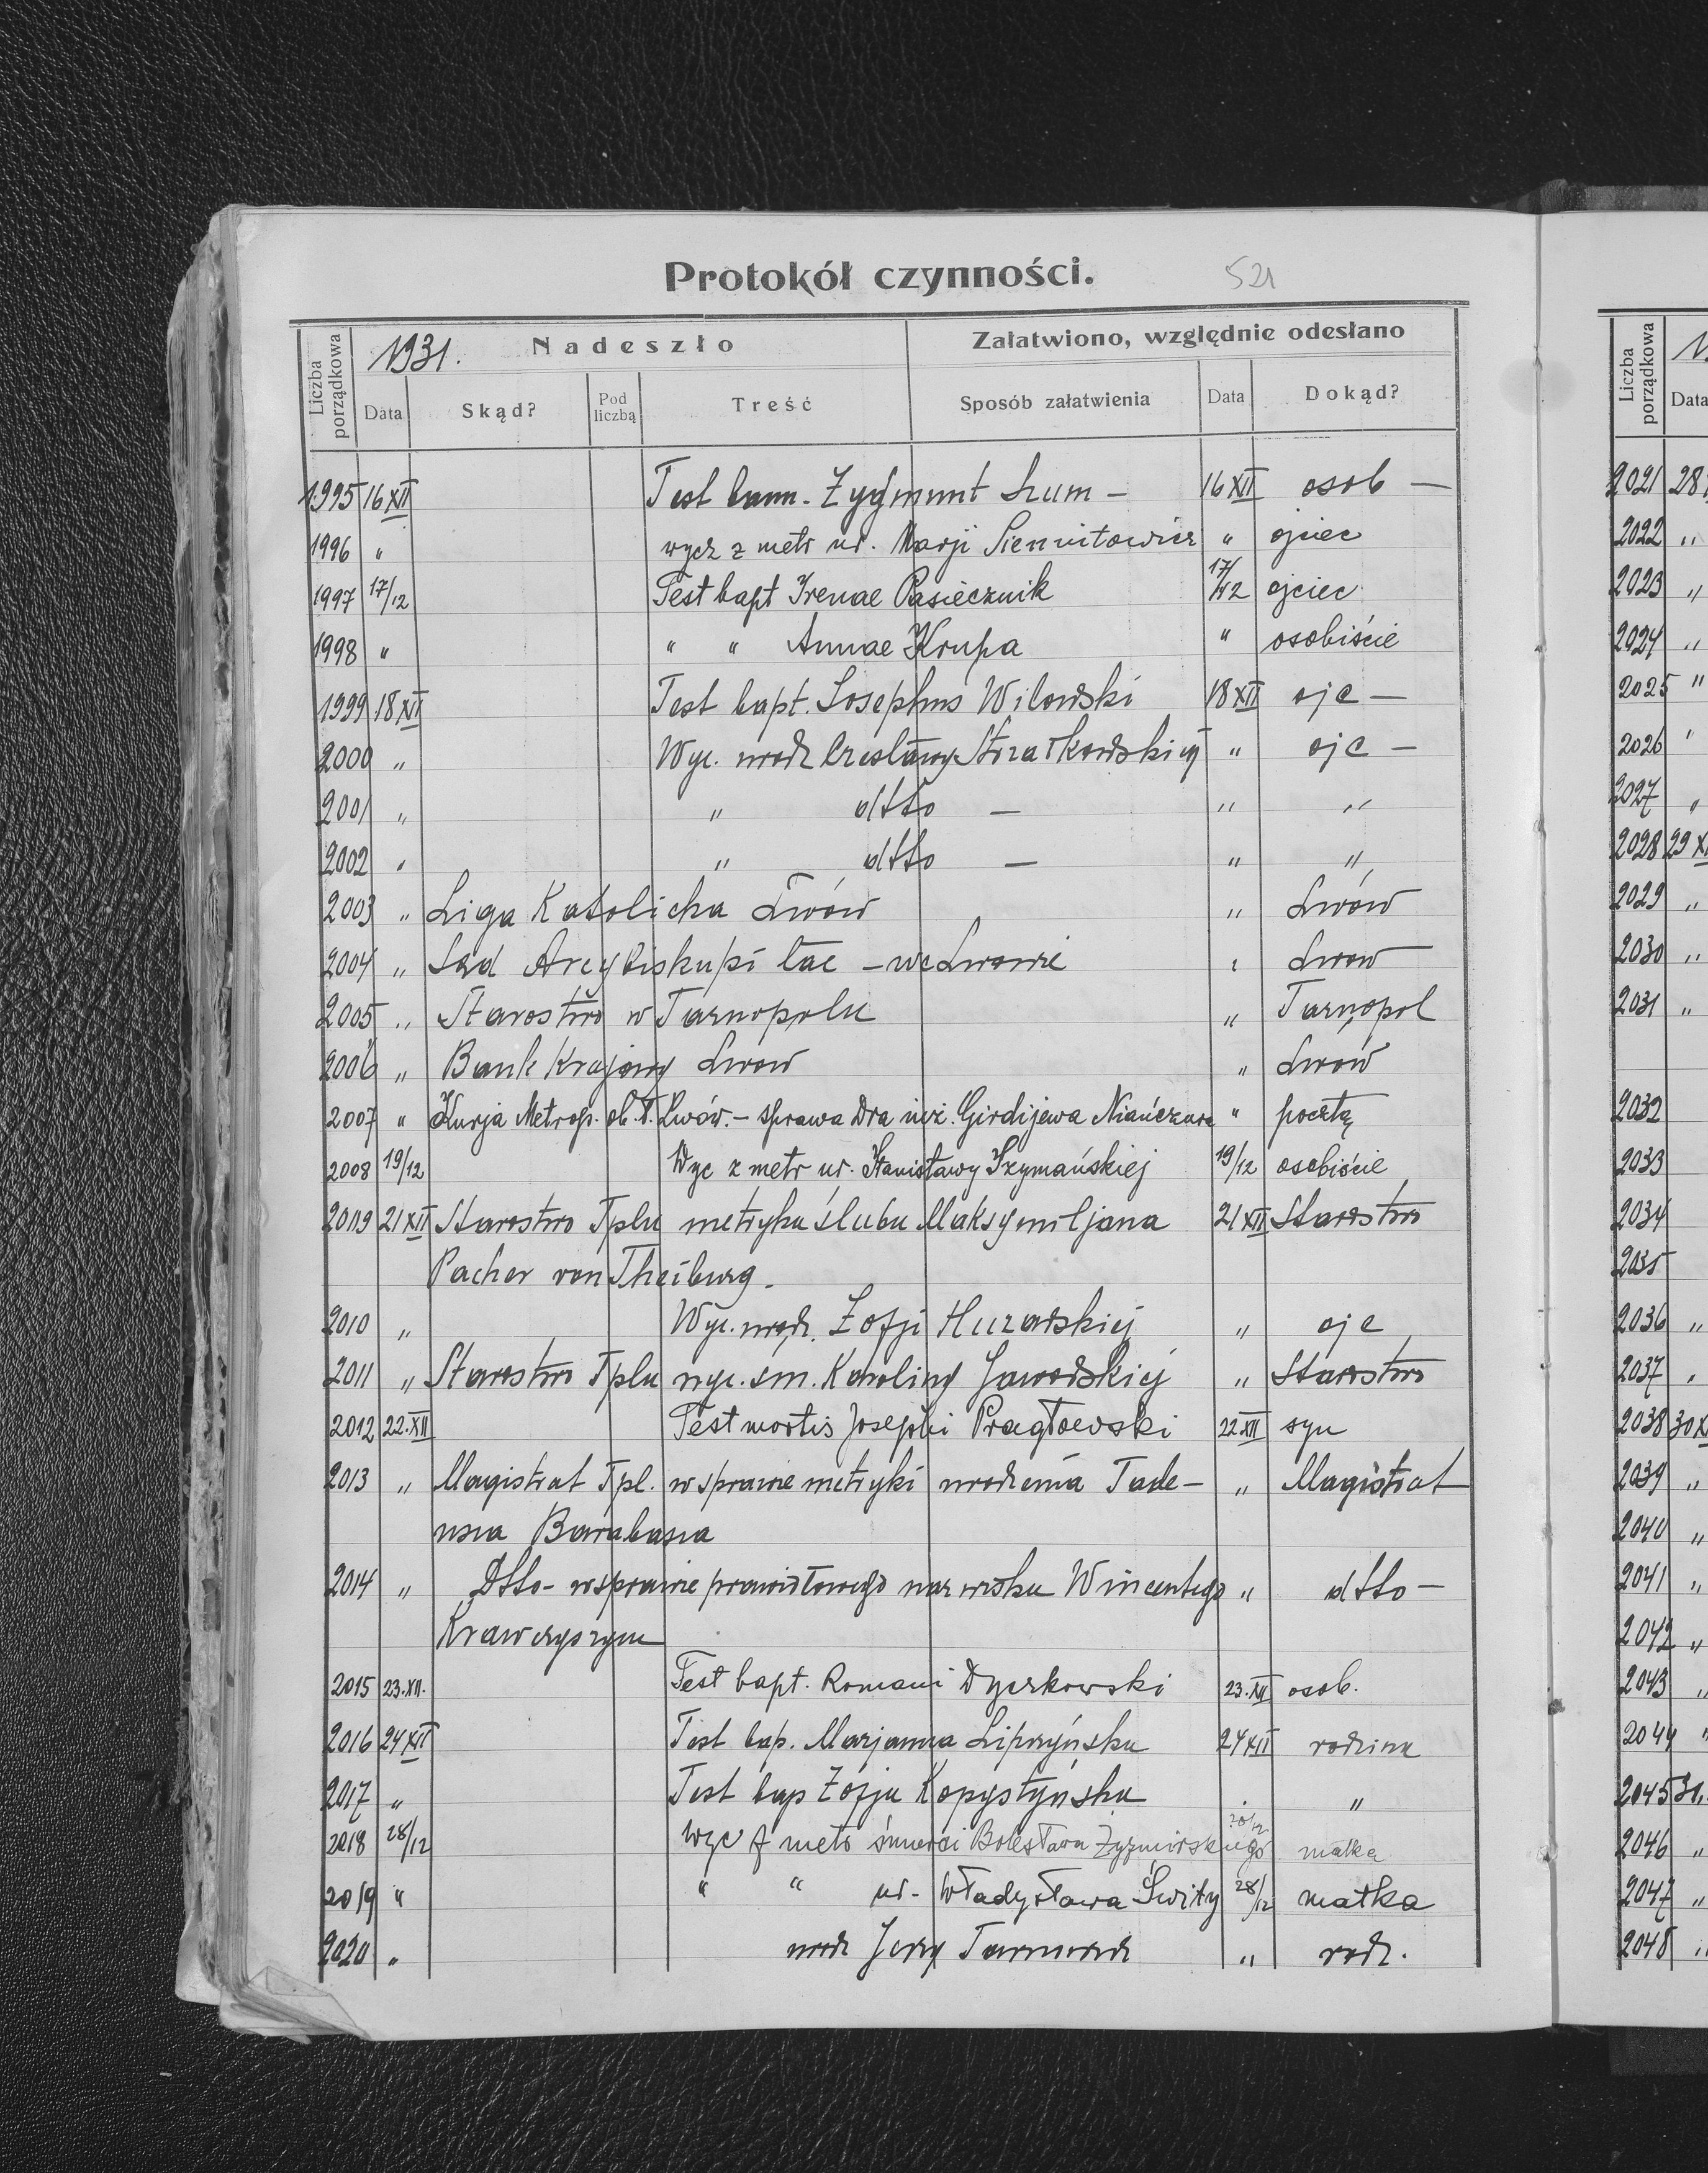 Protokół czynności. 521
Liczba porządkowa 1931. Nadeszło Załatwiono, względnie odesłano
Data Skąd? Pod liczbą Treść Sposób załatwienia Data Dokąd?
1995 16 XII Test bapt. Zygmunt Szum - 16 XII osob -
1996 " wycz z metr ur. Marji " ojciec
1997 17/12 Test bapt Irenae Pasiecznik 17/12 ojciec
1998 " " " Annae Krupa " osobiście
1999 18 XII Test bapt. Josephus Wilowski 18 XII ojc -
2000 " Wyc. urodz Czesławy " ojc -
2001 " " dtto - " "
2002 " " dtto - " "
2003 " Liga Katolicka Lwów " Lwów
2004 " Sąd Arcybiskupi łac - we Lwowie " Lwow
2005 " Starostwo w Tarnopolu " Tarnopol
2006 " Bank Krajowy Lwow " Lwów
2007 " Kurja Metrop. ob. ł. Lwów. - sprawa Dra inż. Girdijewa " pocztą
2008 19/12 Wyc z metr ur. Stanisławy Szymańskiej 19/12 osobiście
2009 21 XII Starostwo Tplu metryka ślubu Maksymiljana 21 XII Starostwo
Pacher von Theiburg.
2010 " Wyc. urodz. Zofji Huzarskiej " ojc
2011 " Starostwo Tplu wyc. śm. Karoliny Jaworskiej " Starostwo
2012 22.XII Test mortis Josephi Pragłowski 22 XII syn
2013 " Magistrat Tpl. w sprawie metryki urodzenia Tade- " Magistrat
usza Barabasza
2014 " Dtto - w sprawie prawidłowego nazwiska Wincentego " dtto -
Krawczyszyna
2015 23.XII. Test bapt. Romani Dyczkowski 23.XII osob.
2016 24 XII Test bap. Marjanna Lipczyńska 24 XII rodzina
2017 " Test bap Zofja Kopystyńska . "
2018 28/12 Wyc z metr śmierci Bolesława 28/12 matka
2019 " " " ur. Władysława Świty 28/12 matka
2020 " urodz Jerzy " rodz.
Liczba porządkowa
Data
2021 28
2022 "
2023 "
2024 "
2025 "
2026 "
2027 "
2028 29 XI
2029 "
2030 "
2031 "
2032
2033
2034
2035
2036 "
2037 "
2038 30 X
2039 "
2040 "
2041 "
2042 "
2043 "
2044 "
2045 31.
2046 "
2047 "
2048 "